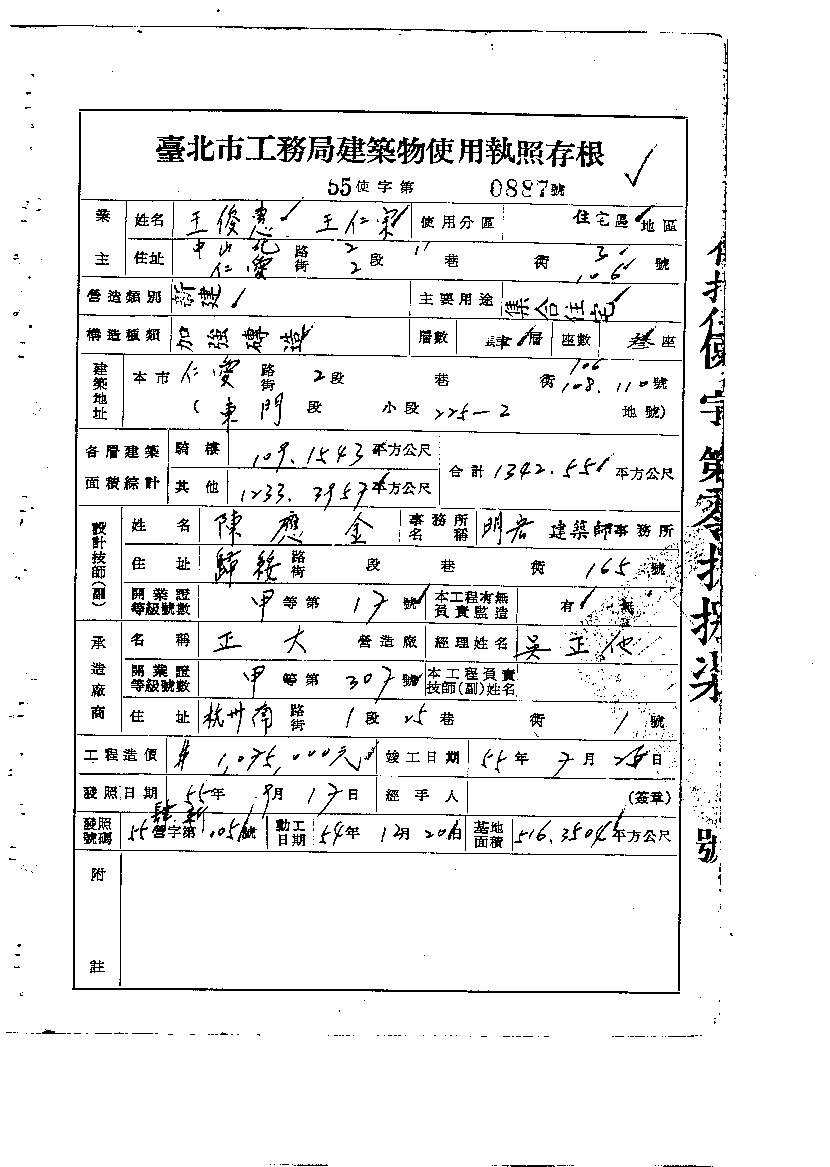 臺北市工務局建築物使用執照存根
55使字第 0887號
業主 姓名 王俊惠 王仁宋 使用分區 住宅區地區
住址 中山北路2段11巷 街3號
仁愛路2段 106號
營造類別 新建 主要用途 集合住宅
構造種類 加強磚造 層數 肆層 座數 座
建築地址 本市 仁愛路街 2段 巷 街 106 108.110號
(東門段 小段 225-2 地號)
各層建築面積綜計 騎樓 109.1543平方公尺 合計1342.55平方公尺
其他 1233.3957平方公尺
設計技師(副) 姓名 陳應金 事務所名稱 明宏 建築師事務所
住址 歸綏路街 段 巷 街 165號
開業證等級號數 甲等第17號 本工程有無負責監造 有 無
承造廠商 名稱 正大 營造廠 經理姓名 吳正
開業證等級號數 甲等第307號 本工程負責技師(副)姓名
住址 杭州南路街 1段25巷 街 1號
工程造價 1,075,000元 竣工日期 55年7月25日
發照日期 55年9月17日 經手人 (簽章)
發照號碼 55營字第 號 動工日期 54年12月20日 基地面積 516.3504平方公尺
附註
使執使字第零捌捌柒號